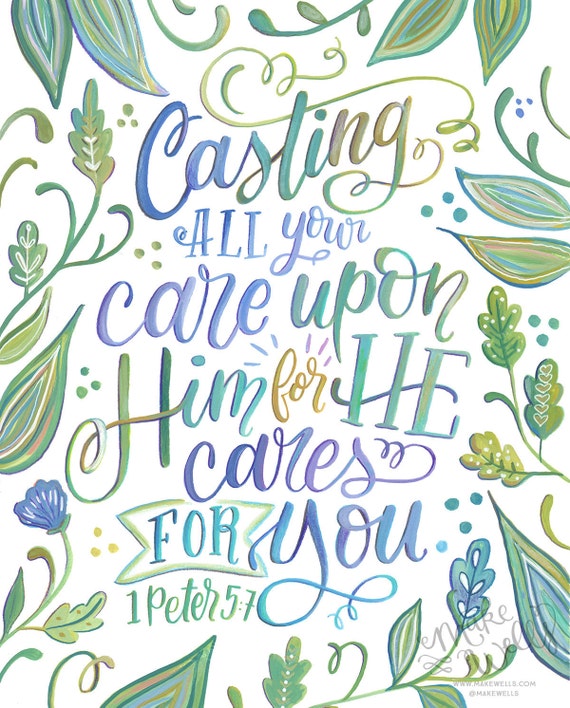 Casting
ALL your
care upon
Him for HE
cares
FOR you.
1 Peter 5:7
Make Wells
WWW.MAKEWELLS.COM
@MAKEWELLS